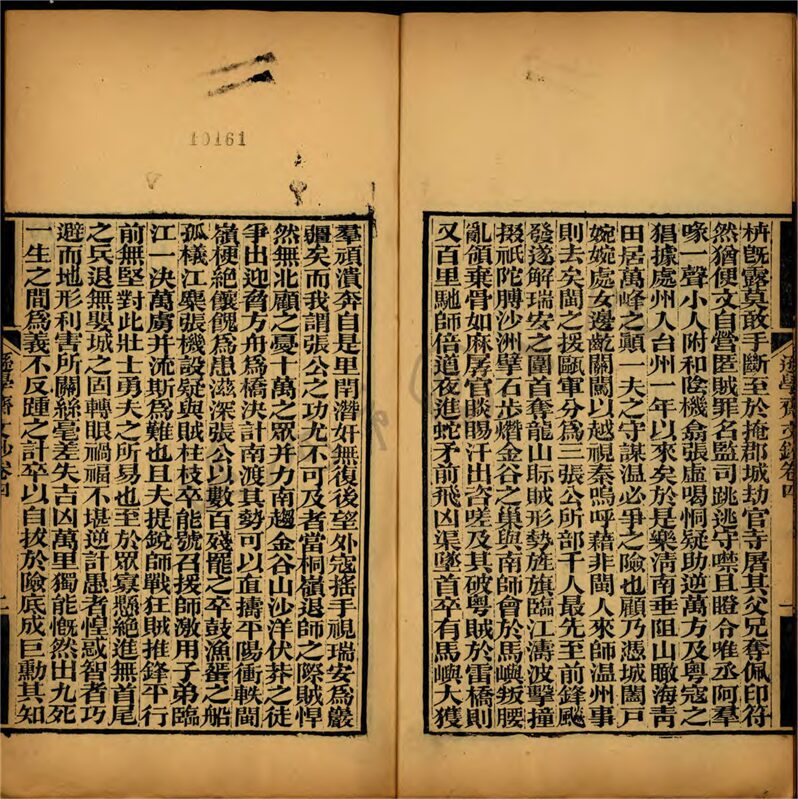 枿旣露莫敢手斷至於掩郡城劫官寺屠其父兄奪佩印符
然猶便文自營匿賊罪名監司跳逃守噤且瞪令唯丞阿羣
喙一聲小人附和陰機翕張虛喝恫疑助逆萬方及粤寇之
猖據處州入台州一年以來矣於是樂淸南垂阻山瞰海靑
田居萬峰之顚一夫之守謀温必爭之險也顧乃憑城闔戶
婉婉處女邊敵關閫以越視秦嗚呼藉非閩人來師温州事
則去矣閩之援甌軍分爲三張公所部千人最先至前鋒颷
發遂解瑞安之圍首奪龍山眎賊形勢旌旗臨江濤波擊撞
掇祇陀膊沙洲擘石步熸金谷之巢與南師會於馬嶼叛腰
亂領棄骨如麻孱官睒睗汗出咨嗟及其破粤賊於雷橋則
又百里馳師倍道夜進蛇矛前飛凶渠墜首卒有馬嶼大獲
遜學齋文鈔卷四
一
羣頑潰奔自是里閈濳奸無復後望外寇搖手視瑞安爲巖
疆矣而我謂張公之功尤不可及者當桐嶺退師之際賊悍
然無北顧之憂十萬之眾并力南趨金谷山沙洋伏莽之徒
爭出迎賀方舟爲橋決計南渡其勢可以直擣平陽衝軼閩
嶺梗絶饟餽爲患滋深張公以數百殘罷之卒鼓漁蜑之船
孤檥江麋張機設疑與賊柱枝卒能號召援師激用子弟臨
江一決萬虜并流斯爲難也且夫提銳師戰狂賊推鋒平行
前無堅對此壯士勇夫之所易也至於眾寡懸絶進無首尾
之兵退無嬰城之固轉眼禍福不堪逆計愚者惶惑智者巧
避而地形利害所關絲毫差失吉凶萬里獨能慨然出九死
一生之間爲義不反踵之計卒以自拔於險底成巨勳其知
遜學齋文鈔卷四
二
10161